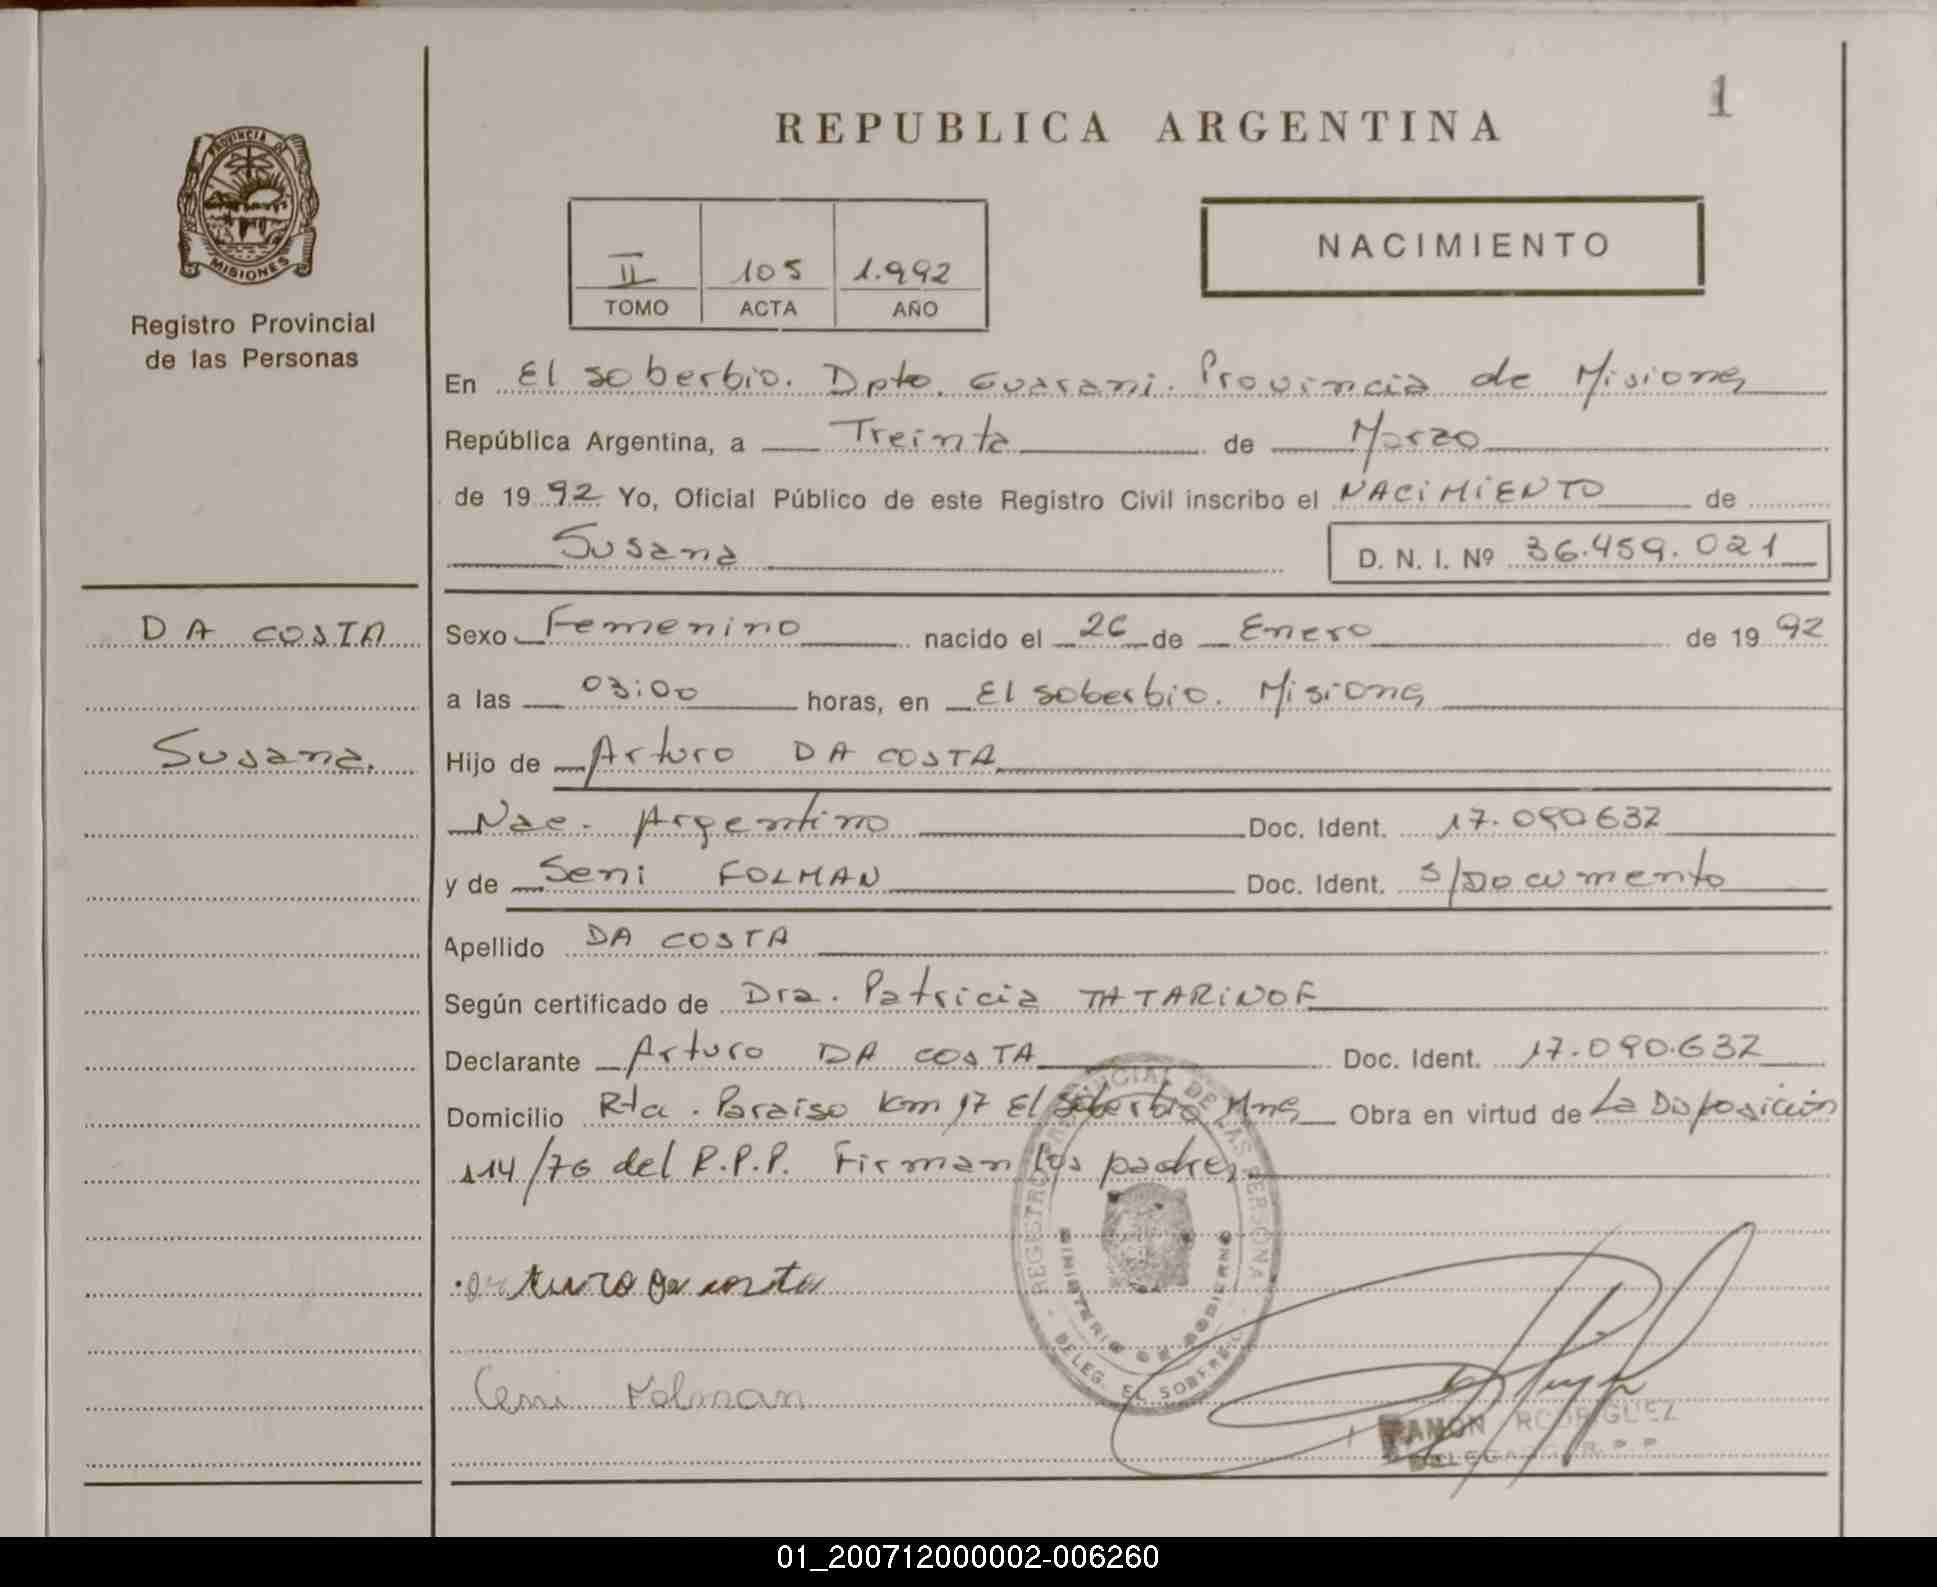 1
REPUBLICA ARGENTINA
PROVINCIA DE
MISIONES
Registro Provincial
de las Personas
II 105 1.992
TOMO ACTA AÑO
NACIMIENTO
En El Soberbio. Dpto. Guarani. Provincia de Misiones
República Argentina, a Treinta de Marzo
de 19 92 Yo, Oficial Público de este Registro Civil inscribo el NACIMIENTO de
Susana D. N. I. Nº 36.459.021
DA COSTA
Susana.
Sexo Femenino nacido el 26 de Enero de 19 92
a las 03:00 horas, en El Soberbio. Misiones
Hijo de Arturo DA COSTA
Nac. Argentino Doc. Ident. 17.090.632
y de Seni FOLMAN Doc. Ident. S/Documento
Apellido DA COSTA
Según certificado de Dra. Patricia TATARINOF
Declarante Arturo DA COSTA Doc. Ident. 17.090.632
Domicilio Rta. Paraiso Km 17 El Soberbio Mnes Obra en virtud de La Disposición
114/76 del R.P.P. Firman los padres
REGISTRO PROVINCIAL DE LAS PERSONAS
MINISTERIO DE GOBIERNO
DELEG. EL SOBERBIO
arturo Da costa
Ceni Folman
RAMON RODRIGUEZ
DELEGADO R. P. P.
01_200712000002-006260